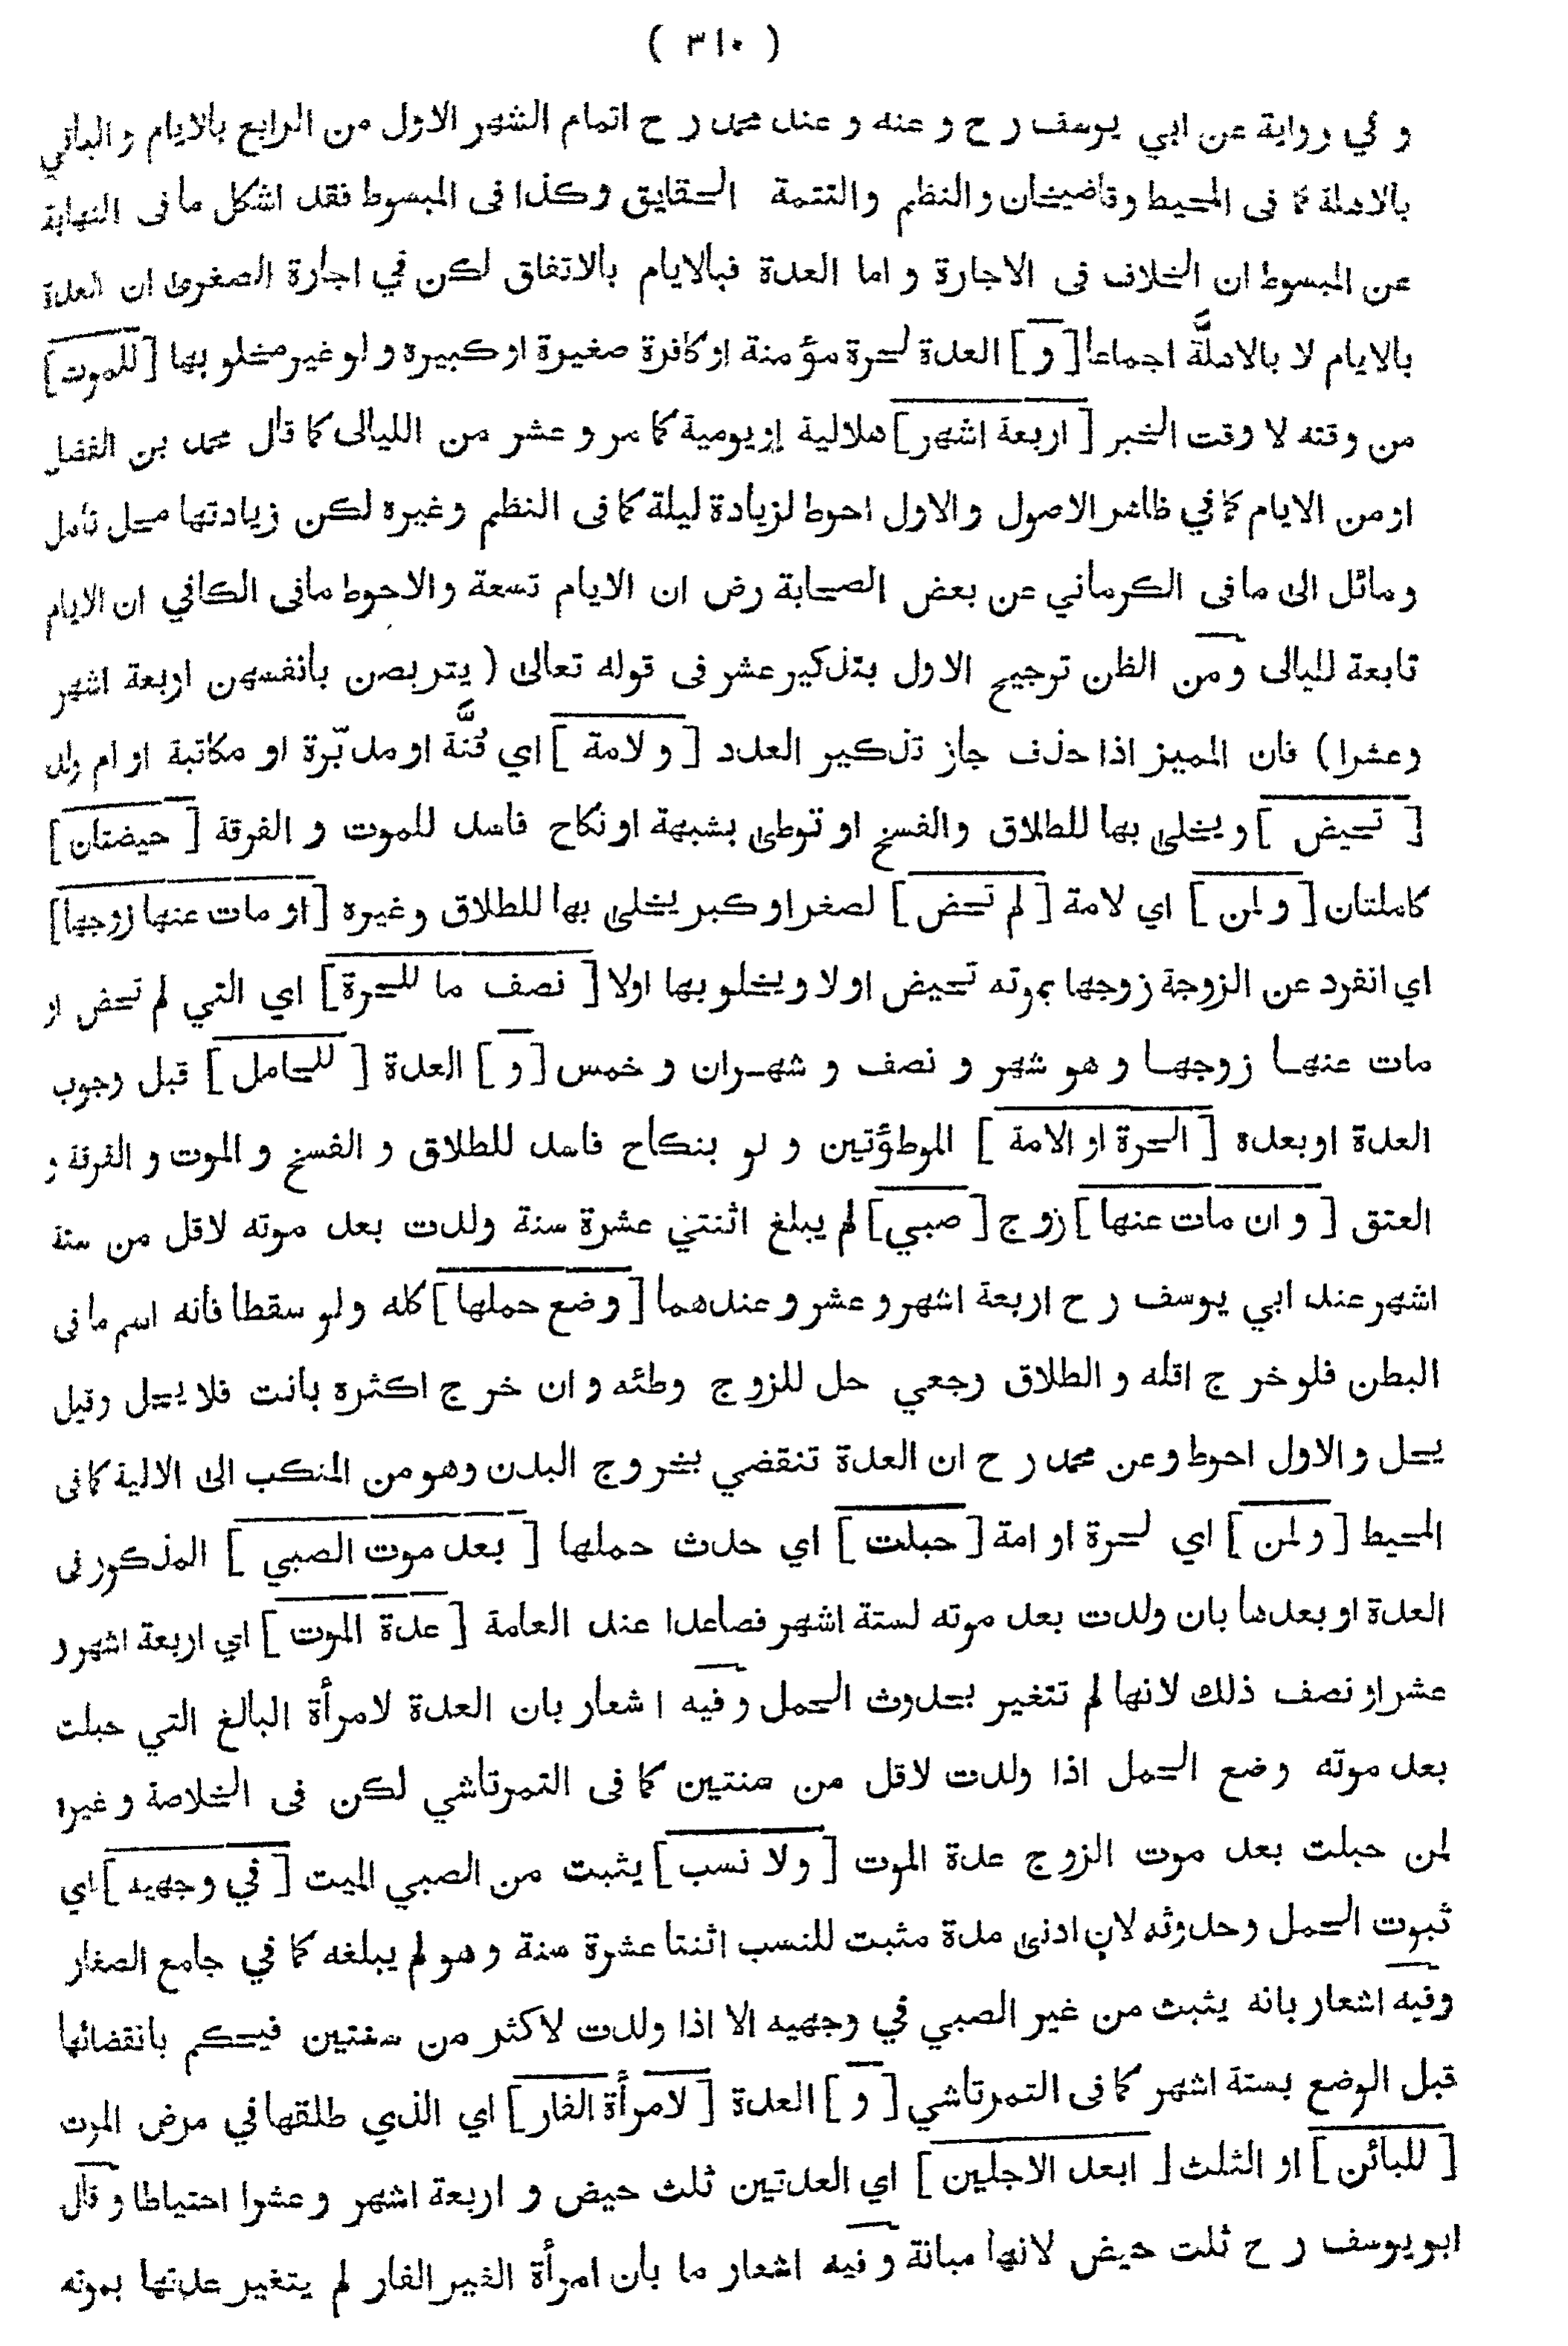 ( ٣١٠ )
و في رواية عن ابي يوسف ر ح و عنه و عند محمد ر ح اتمام الشهر الاول من الرابع بالايام و الباقي
بالاهلة كما فى المحيط وقاضيخان والنظم والتتمة الحقايق وكذا فى المبسوط فقد اشكل ما فى النهاية
عن المبسوط ان الخلاف فى الاجارة و اما العدة فبالايام بالاتفاق لكن في اجارة الصغرى ان العدة
بالايام لا بالاهلّة اجماعا [ و ] العدة لحرة مؤمنة او كافرة صغيرة او كبيرة و لو غير مخلو بها [ للموت ]
من وقته لا وقت الخبر [ اربعة اشهر ] هلالية او يومية كما مر و عشر من الليالى كما قال محمد بن الفضل
او من الايام كما في ظاهر الاصول والاول احوط لزيادة ليلة كما فى النظم وغيره لكن زيادتها محل تامل
ومائل الى ما فى الكرماني عن بعض الصحابة رض ان الايام تسعة والاحوط مافى الكافي ان الايام
تابعة لليالى ومن الظن ترجيح الاول بتذكير عشر فى قوله تعالى ( يتربصن بانفسهن اربعة اشهر
وعشرا ) فان المميز اذا حذف جاز تذكير العدد [ و لامة ] اي قنَّة او مدبّرة او مكاتبة او ام ولد
[ تحيض ] و يخلى بها للطلاق والفسخ او توطئ بشبهة او نكاح فاسد للموت و الفرقة [ حيضتان ]
كاملتان [ و لمن ] اي لامة [ لم تحض ] لصغر او كبر يخلى بها للطلاق وغيره [ او مات عنها زوجها ]
اي انفرد عن الزوجة زوجها بموته تحيض او لا ويخلو بها اولا [ نصف ما للحرة ] اي التي لم تحض او
مات عنهـا زوجهـا و هو شهر و نصف و شهـران و خمس [ و ] العدة [ للحامل ] قبل وجوب
العدة او بعده [ الحرة او الامة ] الموطوءتين و لو بنكاح فاسد للطلاق و الفسخ و الموت و الفرقة و
العتق [ و ان مات عنها ] زوج [ صبي ] لم يبلغ اثنتي عشرة سنة ولدت بعد موته لاقل من ستة
اشهر عند ابي يوسف ر ح اربعة اشهر و عشر و عندهما [ وضع حملها ] كله ولو سقطا فانه اسم ما فى
البطن فلو خرج اقله و الطلاق رجعي حل للزوج وطئه و ان خرج اكثره بانت فلا يحل وقيل
يحل و الاول احوط وعن محمد ر ح ان العدة تنقضي بخروج البدن وهو من المنكب الى الالية كما فى
المحيط [ ولمن ] اي لحرة او امة [ حبلت ] اي حدث حملها [ بعد موت الصبي ] المذكور فى
العدة او بعدها بان ولدت بعد موته لستة اشهر فصاعدا عند العامة [ عدة الموت ] اي اربعة اشهر و
عشر او نصف ذلك لانها لم تتغير بحدوث الحمل وفيه اشعار بان العدة لامرأة البالغ التي حبلت
بعد موته وضع الحمل اذا ولدت لاقل من سنتين كما فى التمرتاشي لكن فى الخلاصة و غيره
لمن حبلت بعد موت الزوج عدة الموت [ ولا نسب ] يثبت من الصبي الميت [ في وجهيه ] اي
ثبوت الحمل وحدوثه لان ادنى مدة مثبت للنسب اثنتا عشرة سنة و هو لم يبلغه كما في جامع الصغار
وفيه اشعار بانه يثبت من غير الصبي في وجهيه الا اذا ولدت لاكثر من سنتين فيحكم بانقضائها
قبل الوضع بستة اشهر كما فى التمرتاشي [ و ] العدة [ لامرأة الفار ] اي الذي طلقها في مرض الموت
[ للبائن ] او الثلث [ ابعد الاجلين ] اي العدتين ثلث حيض و اربعة اشهر و عشرا احتياطا و قال
ابو يوسف ر ح ثلث حيض لانها مبانة و فيه اشعار ما بان امرأة الغير الفار لم يتغير عدتها بموته